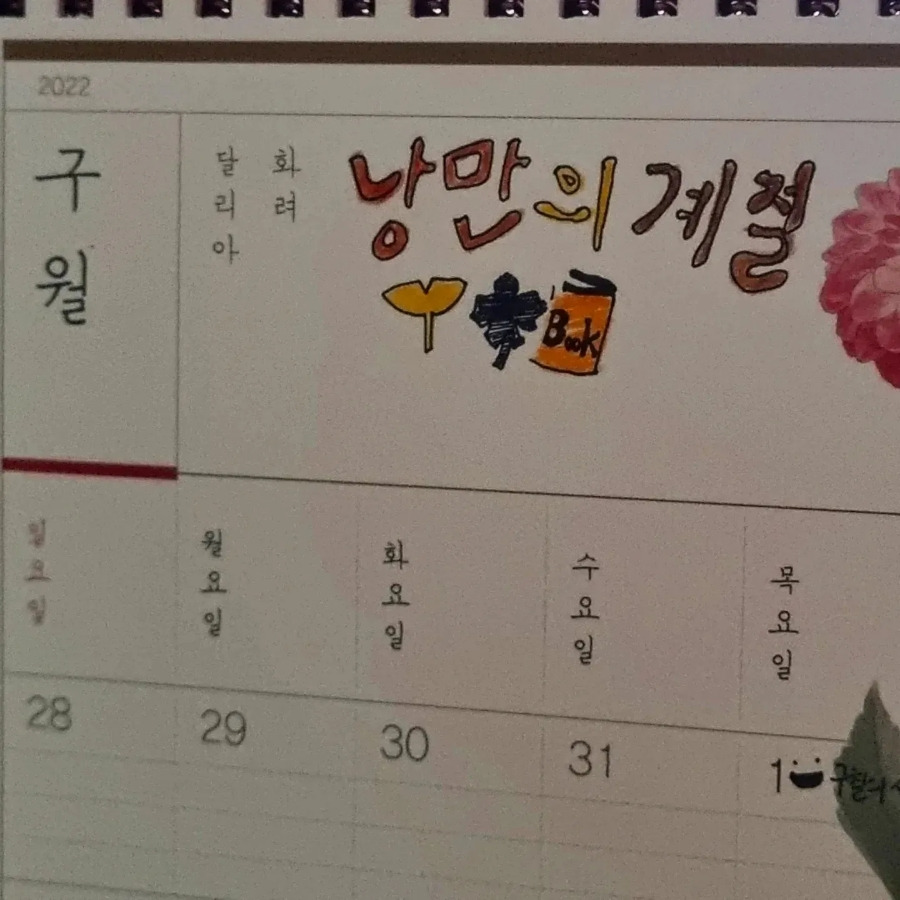 2022
구월
달리아
화려
낭만의 계절
Book
일요일
월요일
화요일
수요일
목요일
28
29
30
31
1 구월의